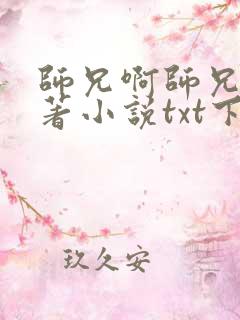 師兄啊師兄
著小説txt下
玖久安